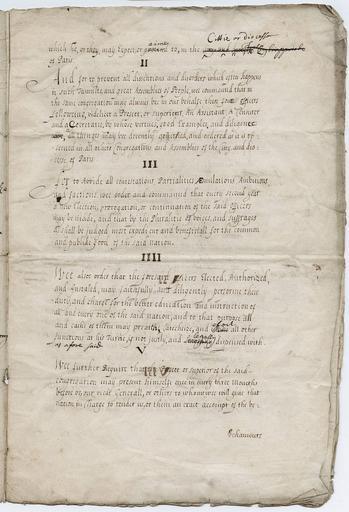 Cittie or diocess
which he, or they may expect or to, in the
of Paris
II
And for to prevent all distentions and disorders which often happen
in such Tumults, and great Assemblies of People, we command that in
the same congregation may always be in our behalfe these officers
following, videlicet a Prefect, or superior, An Assistant, a
and a Secretarie, by whose vertues, good Examples, and diligence
all things may bee decently governed, and ordered as it is
served in all others Congregations and Assemblies of the Citty and dio=
cese of Paris
III
For to avoide all contestations Partialities Æmulations Ambitions
and factions, wee order and command that every second year
a new Election, prorogation, or continuation of the said officers
may be made, and that by the Pluralitie of voices, and suffrages
shall be judged most expedient and beneficiall for the common
and publick good of the said nation.
IIII
Wee also order that the foresaid officers Elected, Authorized,
and Installed, may faithfully, and diligently performe their
duty, and charge for the better education and instruction of
all and every one of the said nation, and to that purpose all
and each of them may preach, Catechize, and all other
functions as his Turne is not justly, and dispensed with
as afore said
V
Wee further Require that the Prefect or superior of the said
congregation may present himself once in every three Months
before or, our vicar Generall, or others to whom wee will give that
nation in charge to render us, or them an exact account of the be=
behaviours